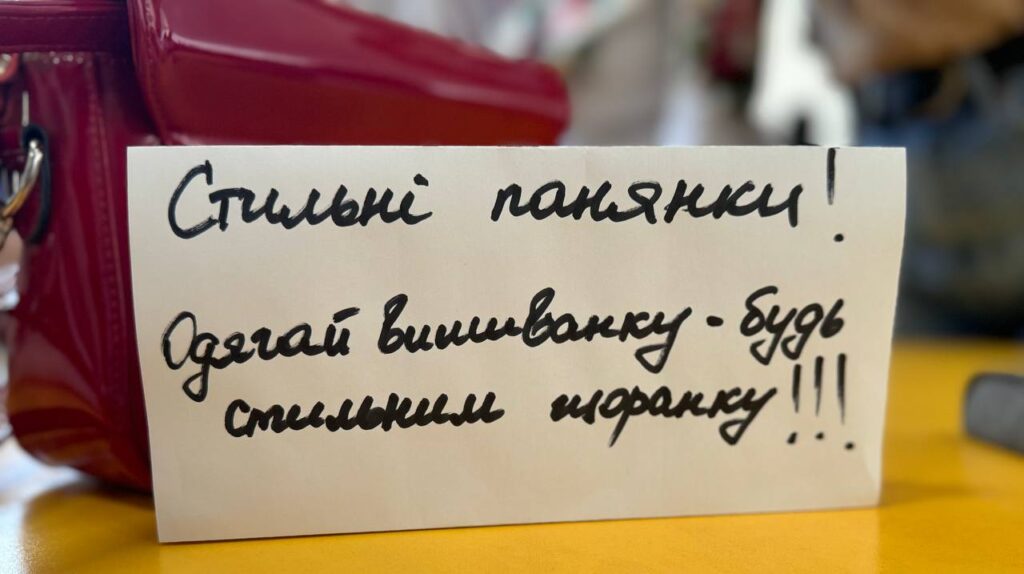 Стильні панянки!
Одягай вишиванку - будь
стильним щоранку!!!